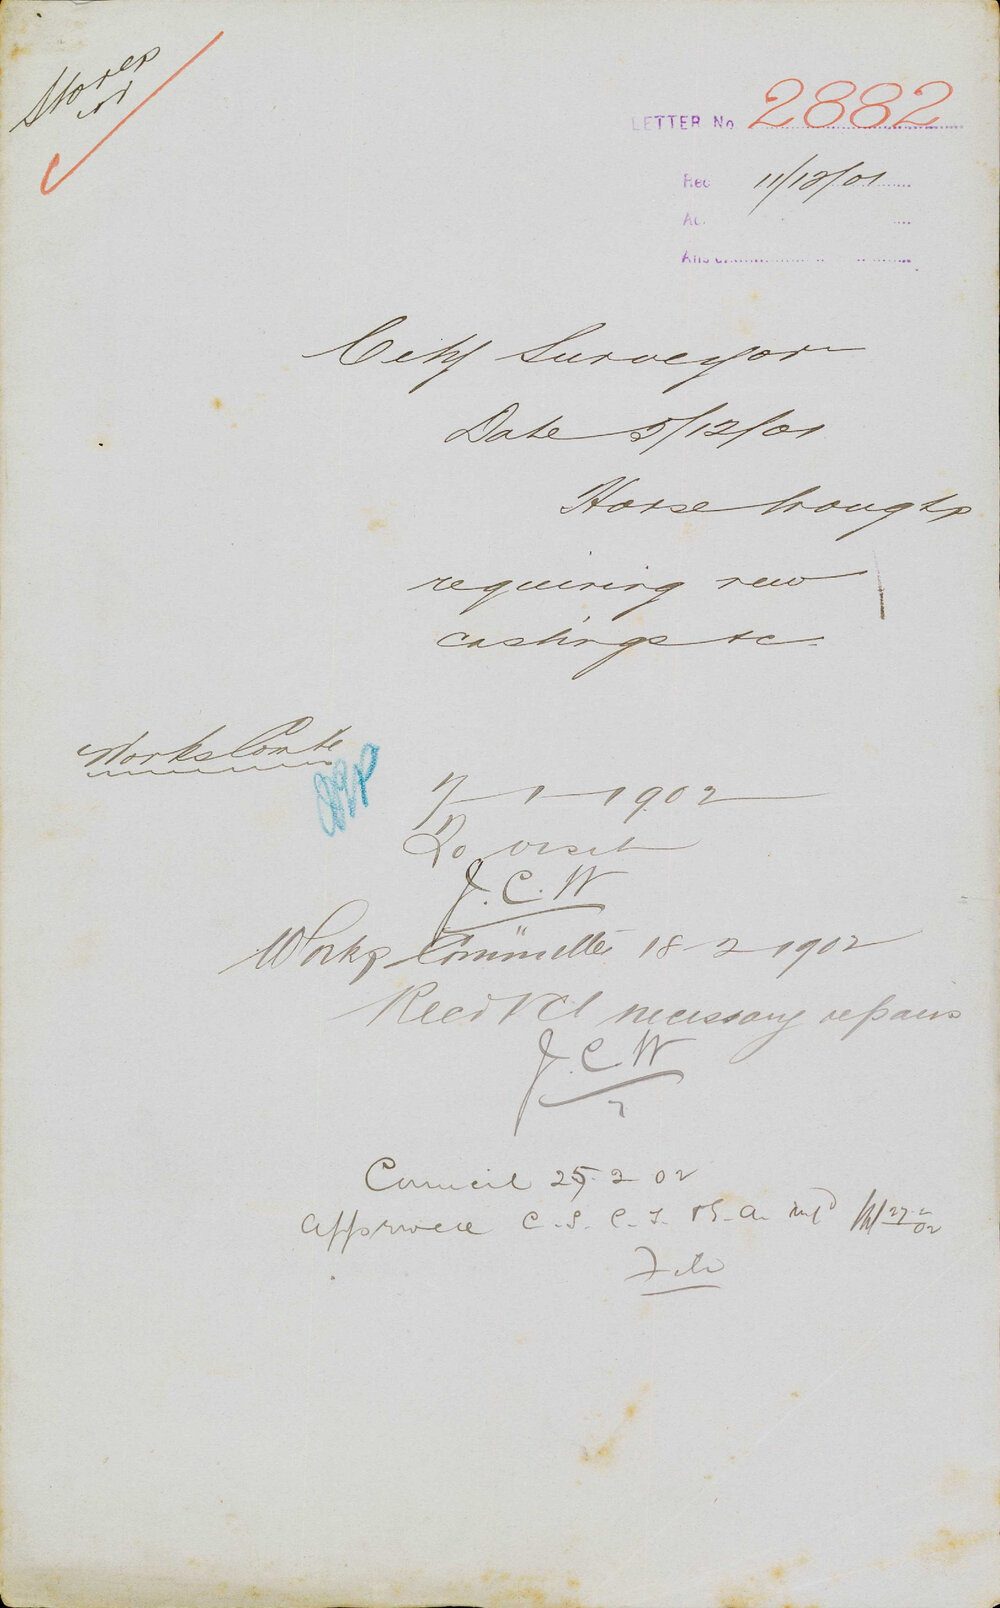 Stores
LETTER No. 2882
Rec 11/12/01
Ac.
Ans
City Surveyor
Date 5/12/01
Horse troughs
requiring new
castings &c.
Works Comte
7-1-1902
To visit
J.C.W
Works Committee 18-2-1902
necessary repairs
J.C.W
Council 25-2-02
Approved C.S. C.T. infd 27-2-02
File